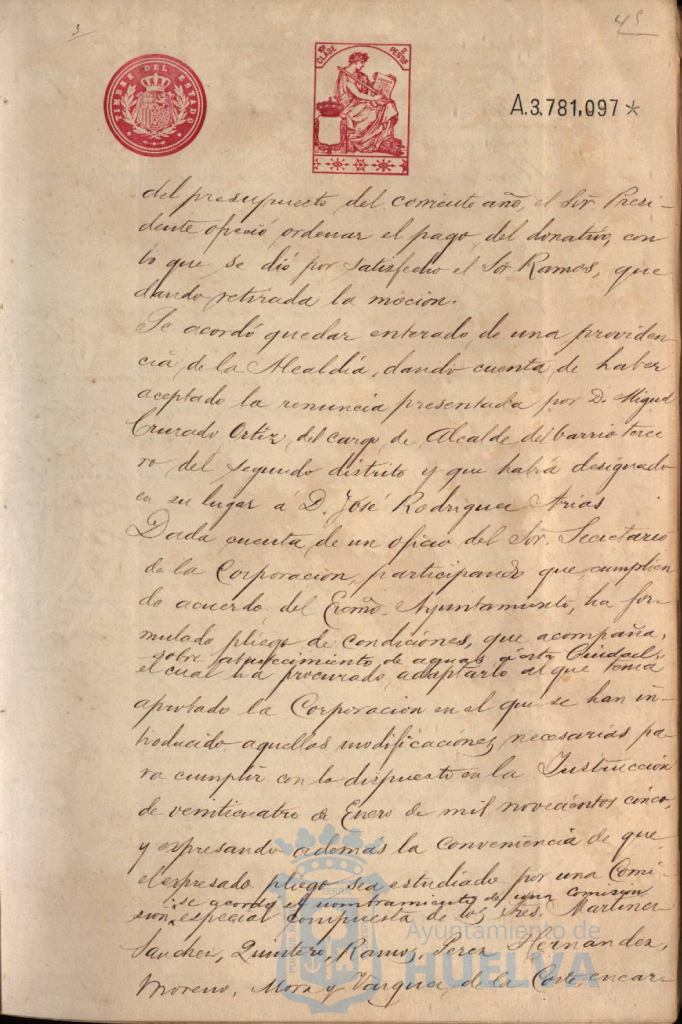 3
45
TIMBRE DEL ESTADO
CLASE
PESETAS
A.3.781,097*
del presupuesto del corriente año, el Sor. Presi-
dente ofreció ordenar el pago del donativo, con
lo que se dió por satisfecho el Sor Ramos, que
dando retirada la moción.
Se acordó quedar enterado de una providen
cia de la Alcaldía, dando cuenta de haber
aceptado la renuncia presentada por D. Miguel
Cruzado Ortiz, del cargo de Alcalde del barrio terce
ro del segundo distrito y que habrá designado
en su lugar á D. José Rodriguez Arias
Dada cuenta de un oficio del Sor. Secretario
de la Corporacion, participando que, cumplien
do acuerdo del Excmo. Ayuntamiento, ha for-
mulado pliego de condiciones, que acompaña,
sobre abastecimiento de aguas á esta Ciudad,
el cual ha procurado adaptarlo al que tenia
aprobado la Corporacion en el que se han in-
troducido aquellas modificaciones necesarias pa-
ra cumplir con lo dispuesto en la Instrucción
de veinticuatro de Enero de mil novecientos cinco,
y expresando además la conveniencia de que
el expresado pliego sea estudiado por una Comi-
se acordó el nombramiento de una comision
sion especial compuesta de los Sres. Martinez
Sanchez, Quintero, Ramos, Perez Hernandez,
Moreno, Mora y Vazquez de la Corte, encar-
Ayuntamiento de
HUELVA